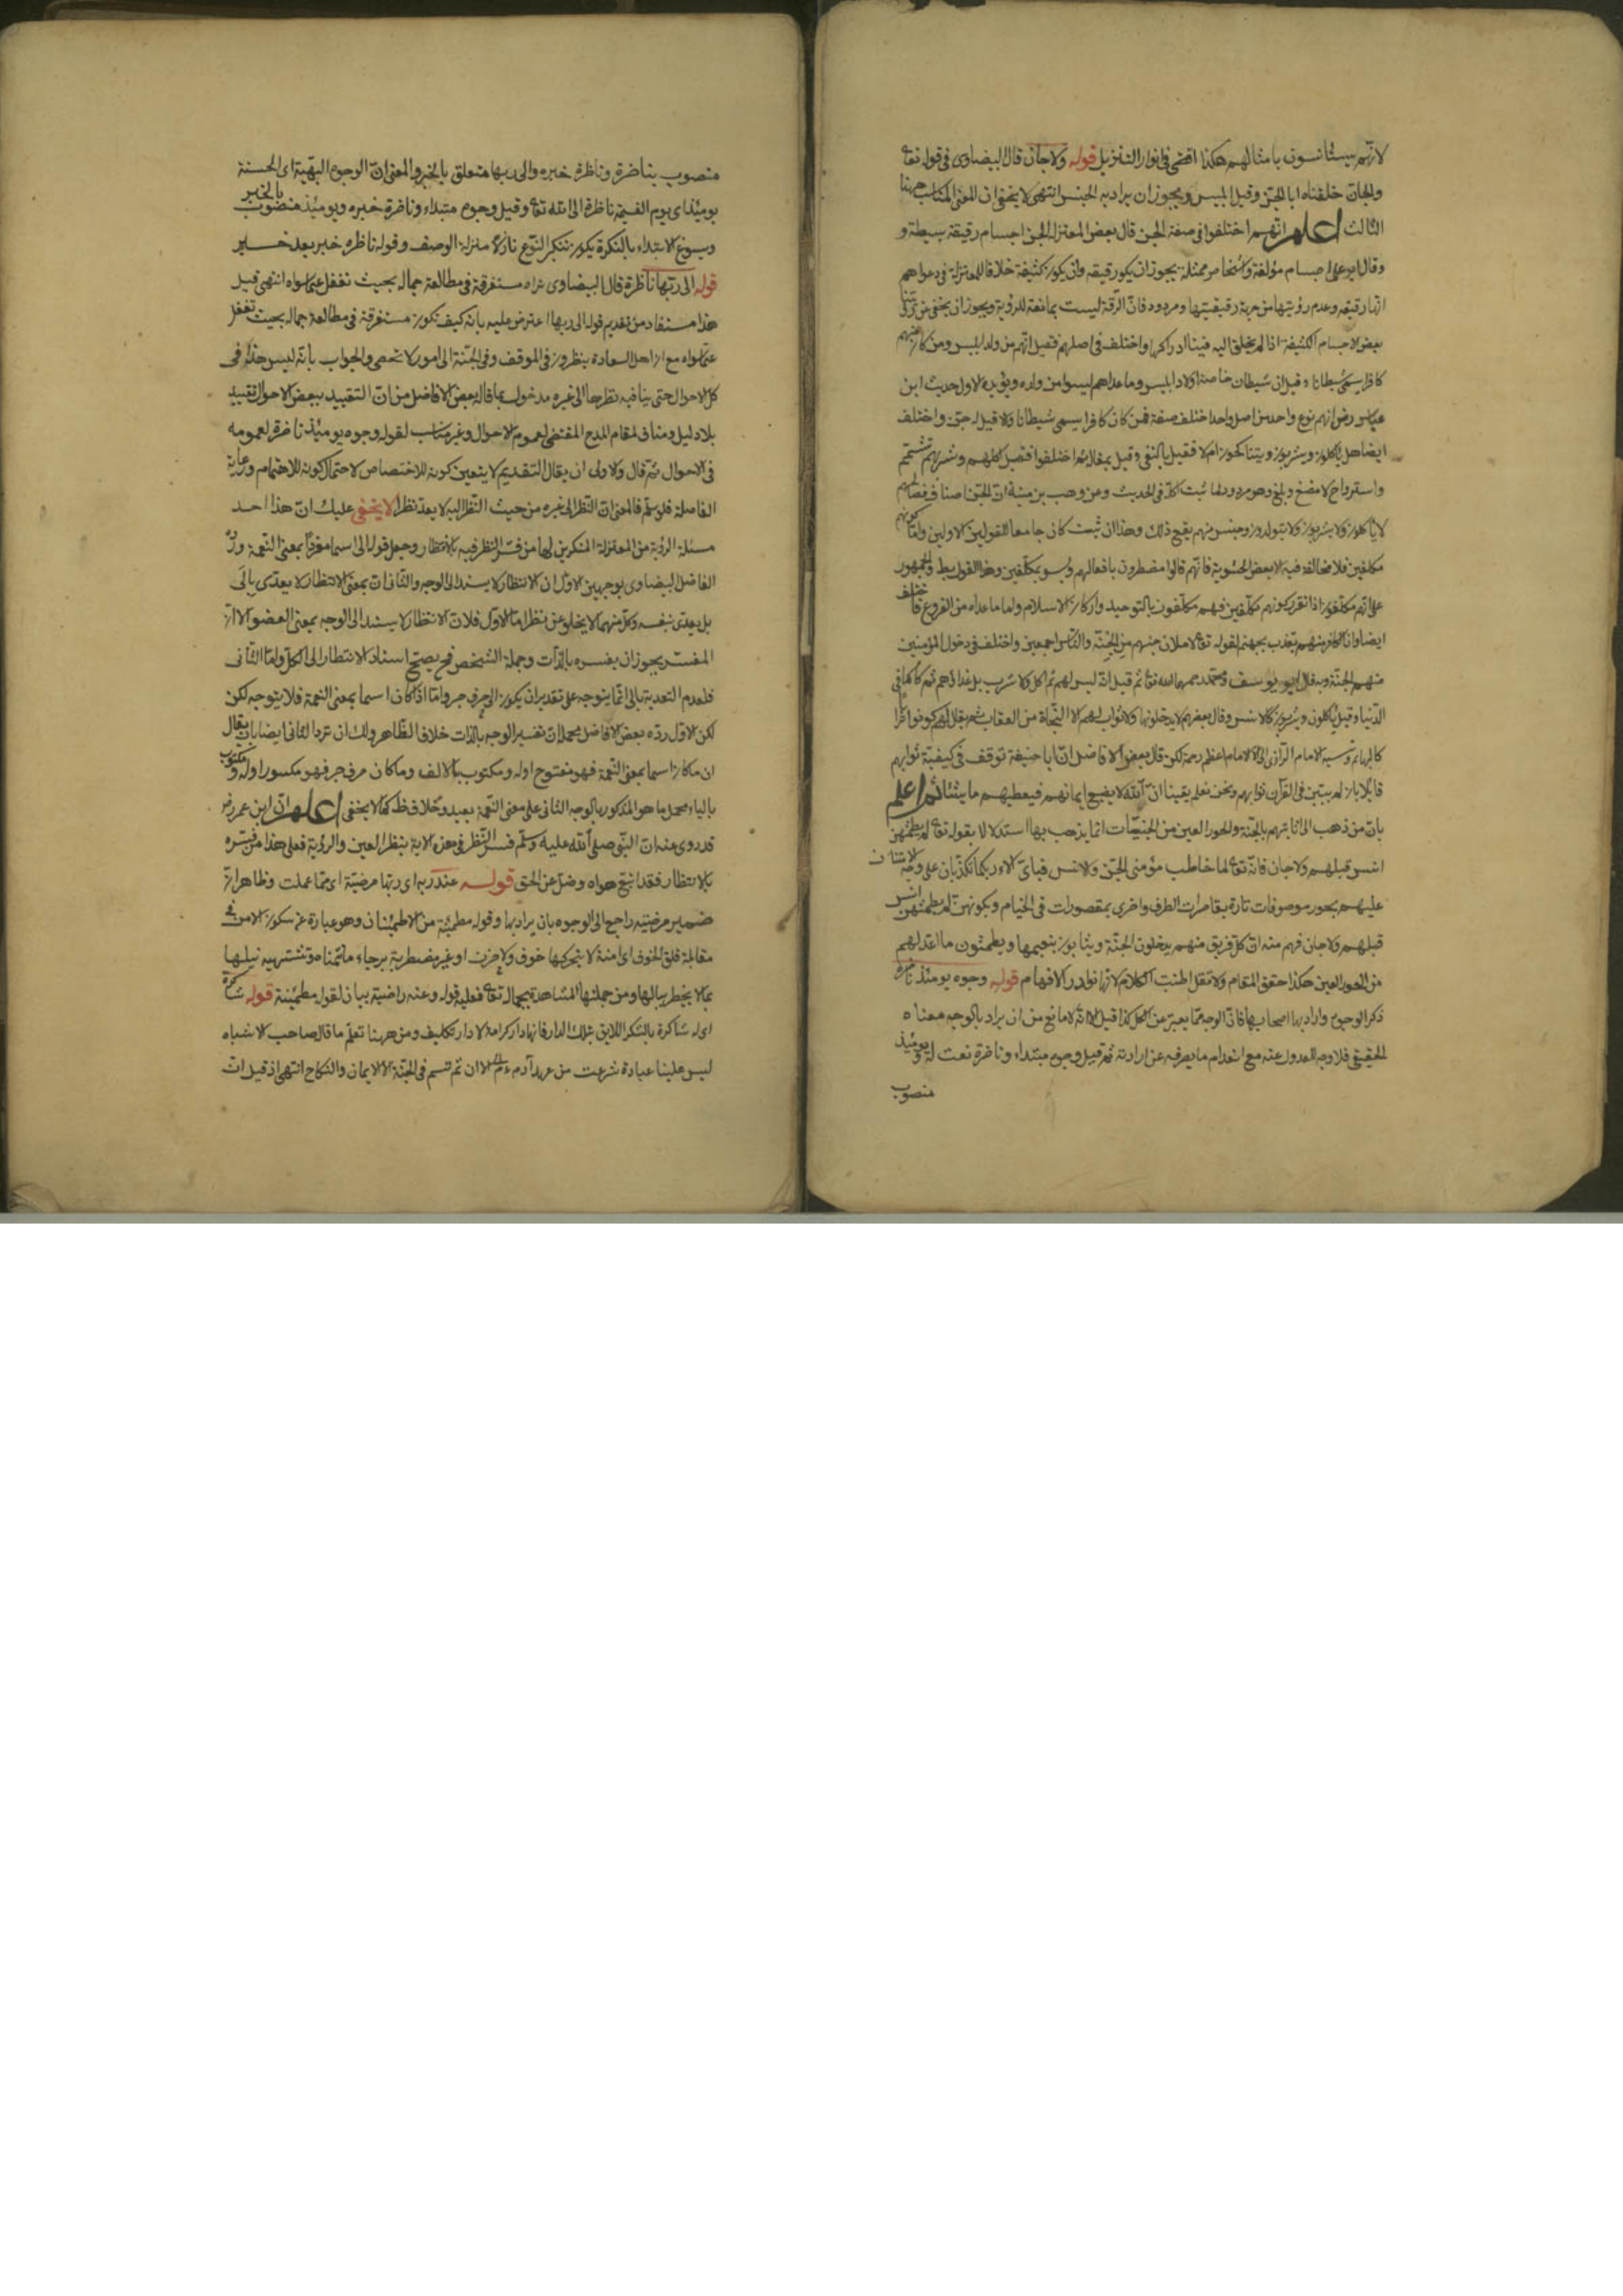 لانهم يستأنسون بامثالهم هكذا افضى في انوار التنزيل قوله ولا جان قال البيضاوى فى قوله تعا
والجان خلقناه ابا الجن وقيل ابليس ويجوز ان يراد به الجنس انتهى لا يخفى ان المعنى المناسب ههنا
الثالث اعلم انهم اختلفوا فى صفة الجن قال بعض المعتزلة الجن اجسام رقيقة بسيطة و
وقال ابو على اجسام مؤلفة واشخاص ممثلة يجوز ان يكون رقيقه وان يكون كثيفة خلافا للمعتزلة فى دعواهم
انها رقيقه وعدم رؤيتها من جهة رقيقيتها ومردود فان الرقة ليست بمانعة للرؤية ويجوز ان يخفى عن
بعض الاجسام الكثيفة اذا لم يخلق الله فينا ادراكها واختلف فى اصلهم فقيل انهم من ولد ابليس ومن كان منهم
كافرا يسمى شيطانا وقيل ان شيطان خاصة اولاد ابليس وما عداهم ليسوا من ولده ويؤيده الاول حديث ابن
عباس رض انهم نوع واحد من اصل واحد اختلف صفة فمن كان كافرا يسمى شيطانا ولا قيل له جن واختلف
ايضا هل ياكلون ويشربون ويتناكحون ام لا فقيل بالنفى وقيل بمقابله ثم اختلفوا فقيل اكلهم وشربهم تشمم
واسترواح لا مضغ وبلع وهو مردود لما ثبت اكله فى الحديث وعن وهب بن منبه ان الجن اصناف فخالصهم
لا ياكلون ولا يشربون ولا يتوالدون وجنس منهم يقع ذلك وهذا ان ثبت كان جامعا للقولين الاولين واما كونهم
مكلفين فلا مخالفة فيه الا بعض الحشوية فانهم قالوا مضطرون بافعالهم وليسو بمكلفين وهذا القول والجمهور
على انهم مكلفون اذا تقرر كونهم مكلفين فهم مكلفون بالتوحيد واركان الاسلام واما ما عداه من الفروع فاختلف
ايضا وان الكافر منهم يعذب بجهنم لقوله تعا لاملان جهنم من الجنة والناس اجمعين واختلف فى دخول المؤمنين
منهم الجنة وبه قال ابو يوسف ومحمد رحمهما الله تعا ثم قيل انه ليس لهم ثم اكل ولا شرب بل غذائهم ثم كما فى
الدنيا وقيل ياكلون ويشربون كالانس وقال بعضهم لا يدخلونها ولا ثواب لهم الا النجاة من العقاب ثم يقال لهم كونوا ترابا
كالبهائم ونسبه الامام الرازى الى الامام اعظم رحمة لكن قال بعض الافاضل ان ابا حنيفة توقف فى كيفية ثوابهم
قائلا بانه لم يتبين فى القرآن ثوابهم ونحن نعلم يقينا ان الله لا يضيع ايمانهم فيعطيهم ما يشاء ثم اعلم
بان من ذهب الى اثابتهم بالجنة والحور العين من الجنيات انما يذهب بها استدلالا بقوله تعا لم يطمثهن
انس قبلهم ولا جان فانه تعا لما خاطب مؤمنى الجن والانس فباى آلاء ربكما تكذبان على وجه الامتنان
عليهم بحور موصوفات تارة بقاصرات الطرف واخرى بمقصورات فى الخيام وبكونهن لم يطمثهن انس
قبلهم ولا جان فهم منه ان كل فريق منهم يدخلون الجنة ويثابون بنعيمها ويطمثون ما اعد لهم
من الحور العين هكذا حقق المقام ولا تقل اطنبت الكلام لانها نوادر الافهام قوله وجوه يومئذ ناضرة
ذكر الوجوه واراد بها اصحابها فان الوجه مما يعبر عن الكل كذا قيل الا انه لا مانع من ان يراد بالوجه معناه
الحقيقى فلا وجه للعدول عنه مع انعدام ما يصرفه عن ارادته ثم قيل وجوه مبتداء وناضرة نعت له ويومئذ
منصوب
منصوب بناضرة وناظرة خبره والى ربها متعلق بالخبر والمعنى ان الوجوه البهية اى الحسنة
يومئذ اى يوم القيمة ناظرة الى الله تعا وقيل وجوه مبتداء وناضرة خبره ويومئذ منصوب بالخبر
وسوغ الابتداء بالنكرة بكون تنكير النوع نازلا منزلة الوصف وقوله ناظره خبر بعد خبر
قوله الى ربها ناظرة قال البيضاوى تراه مستغرقة فى مطالعة جماله بحيث تغفل عما سواه انتهى قيل
هذا مستفاد من تقديم قوله الى ربها اعترض عليه بانه كيف تكون مستغرقة فى مطالعة جماله بحيث تغفل
عما سواه مع ان اهل السعادة ينظرون فى الموقف وفى الجنة الى امور لا تحصى والجواب بانه ليس هذا فى
كل الاحوال حتى ينافيه نظرها الى غيره مدخول بما قاله بعض الافاضل من ان التقييد ببعض الاحوال تقييد
بلا دليل ومناف لمقام المدح المقتضى لعموم الاحوال وغير مناسب لقوله وجوه يومئذ ناضرة لعمومه
فى الاحوال ثم قال والاولى ان يقال التقديم لا يتعين كونه للاختصاص لاحتمال كونه للاهتمام ورعاية
الفاصلة فلو سلم فالمعنى ان النظر الى غيره من حيث النظر اليه لا يعد نظرا لا يخفى عليك ان هذا احد
مسئلة الرؤية من المعتزلة المنكرين لها من فسر النظر فيه بالانتظار وجعل قوله الى اسما مفردا بمعنى النعمة ورد
الفاضل البيضاوى بوجهين الاول ان الانتظار لا يسند الى الوجه والثانى ان بمعنى الانتظار لا يعدى بالى
بل يعدى بنفسه وكل منهما لا يخلو عن نظر اما الاول فلان الانتظار لا يسند الى الوجه بمعنى العضو الا ان
المفسر يجوز ان يفسره بالذات وجملة الشخص فح يصح اسناد الانتظار الى الكل واما الثانى
فلعدم التعدية بالى انما يتوجه على تقدير ان يكون الى حرف جر واما اذا كان اسما بمعنى النعمة فلا يتوجه لكن
لكن الاول رده بعض الافاضل بحملان تفسير الوجه بالذات خلاف الظاهر ولك ان ترد الثانى ايضا بان يقال
ان ما كان اسما بمعنى النعمة فهو مفتوح اوله ومكتوب بالالف وما كان حرف جر فهو مكسور اوله ومكتوب
بالياء محمل ما هو المذكور بالوجه الثانى على معنى النعمة بعيد وخلاف ظ كما لا يخفى اعلم ان ابن عمر رض
قد روى عنه ان النبى صلى الله عليه وسلم فسر النظر فى هذه الاية بنظر العين والرؤية فعلى هذا من فسره
بالانتظار فقد اتبع هواه وضل عن الحق قوله عند ربه اى ربها مرضية اى مما عملت وظاهر ان
ضمير مرضيته راجع الى الوجوه بان يراد بها وقوله مطمئنة من الاطمئنان وهو عبارة عن سكون الامن فى
مقابلة قلق الخوف اى امنة لا يحركها خوف ولا حزن او غير مضطربة برجاء ما تتمناه وتشتهيه نيلها
بما لا يخطر ببالها ومن جملتها المشاهدة بجماله تعا فعليه قوله وعنه راضية بيان لقوله مطمئنة قوله شاكرة
اى له شاكرة بالشكر اللايق بتلك الدار فانها دار كرامة لا دار تكليف ومن ههنا تعلم ما قال صاحب الاشباه
ليس علينا عبادة شرعت من عهد آدم ءم الى الان ثم تستمر فى الجنة الا الايمان والنكاح انتهى اذ قيل ان